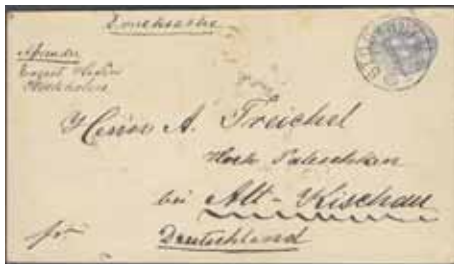 Drucksache
Absender
August
Stockholm
Herrn A. Treichel
Hoch Paleschken
bei Alt-Kischau
Deutschland